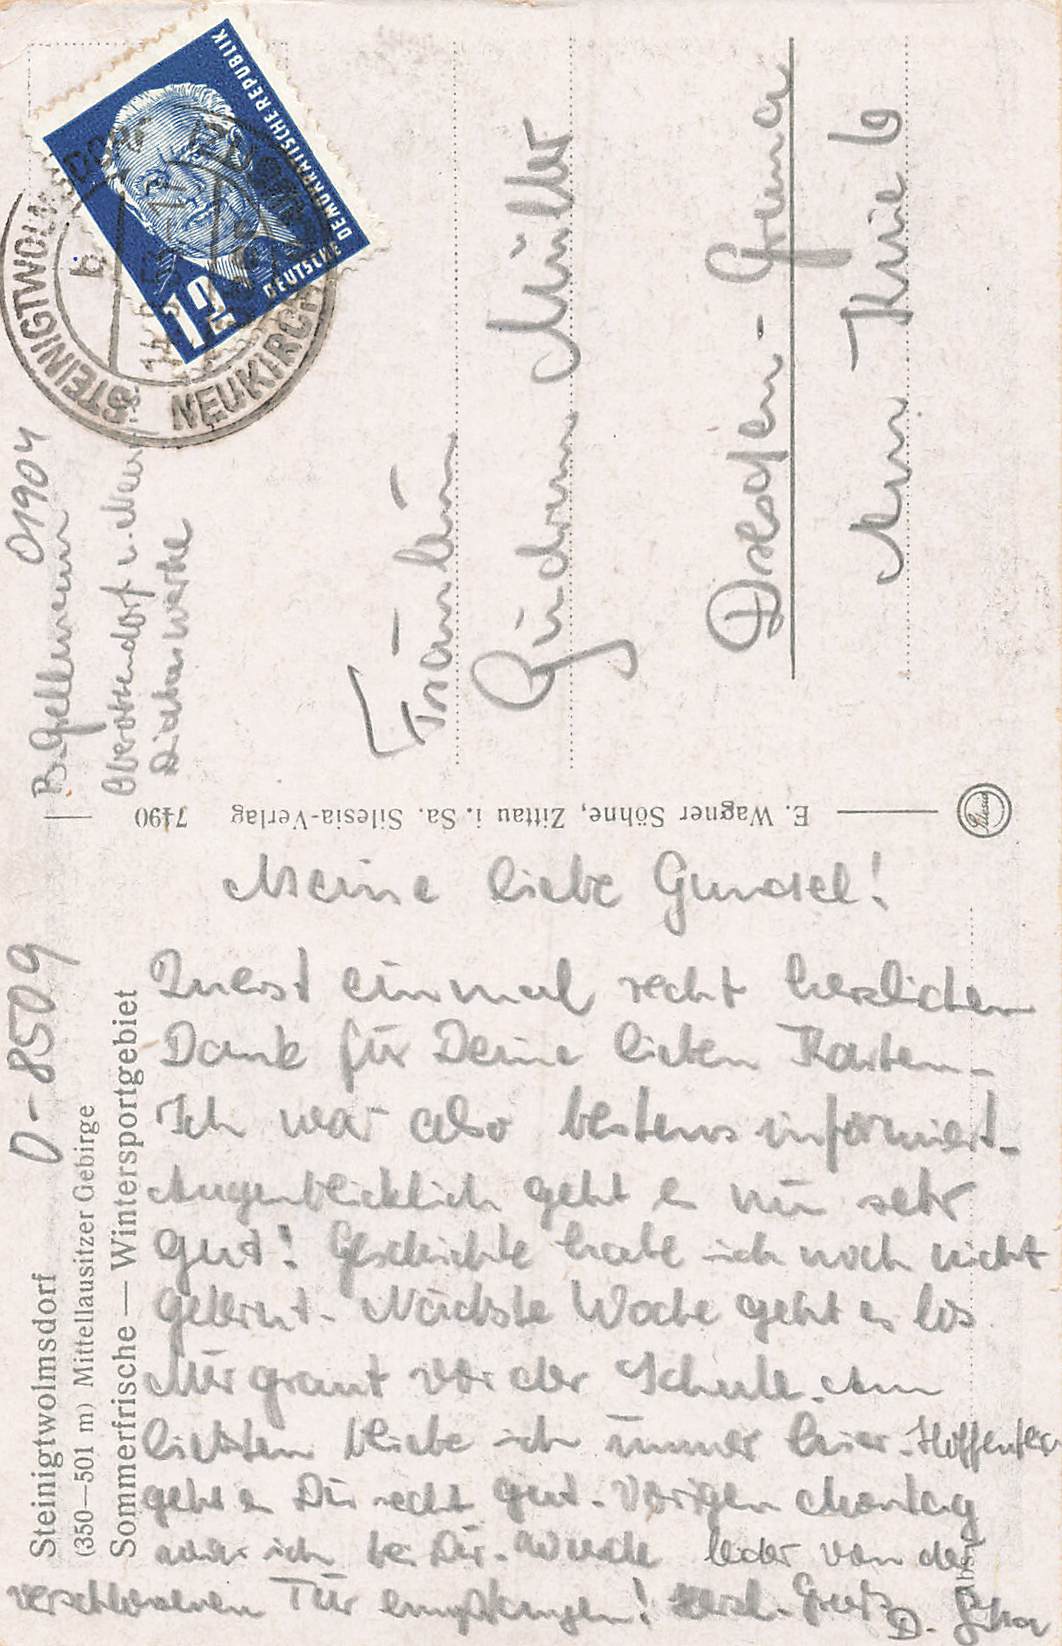 Steinigtwolmsdorf
(350—501 m) Mittellausitzer Gebirge
Sommerfrische — Wintersportgebiet
D-8509
Meine liebe Gundel!
Zuerst einmal recht herzlichen
Dank für Deine lieben Karten.
Ich war also bestens informiert.
Augenblicklich geht es mir sehr
gut! Geschichte habe ich noch nicht
gelernt. Nächste Woche geht es los.
Mir graut vor der Schule. Am
liebsten bliebe ich immer hier. Hoffentlich
geht es Dir recht gut. Vorigen Montag
war ich bei Dir. Wurde leider von der
verschlossenen Tür empfangen! Herzl. Gruß D.
7490 E. Wagner Söhne, Zittau i. Sa. Silesia-Verlag
B. Gellmann 01904
Oberottendorf
Fräulein
Gudrun Müller
Dresden-Gruna
Am
DEUTSCHE DEMOKRATISCHE REPUBLIK
12
STEINIGTWOLMSDORF
NEUKIRCH
b